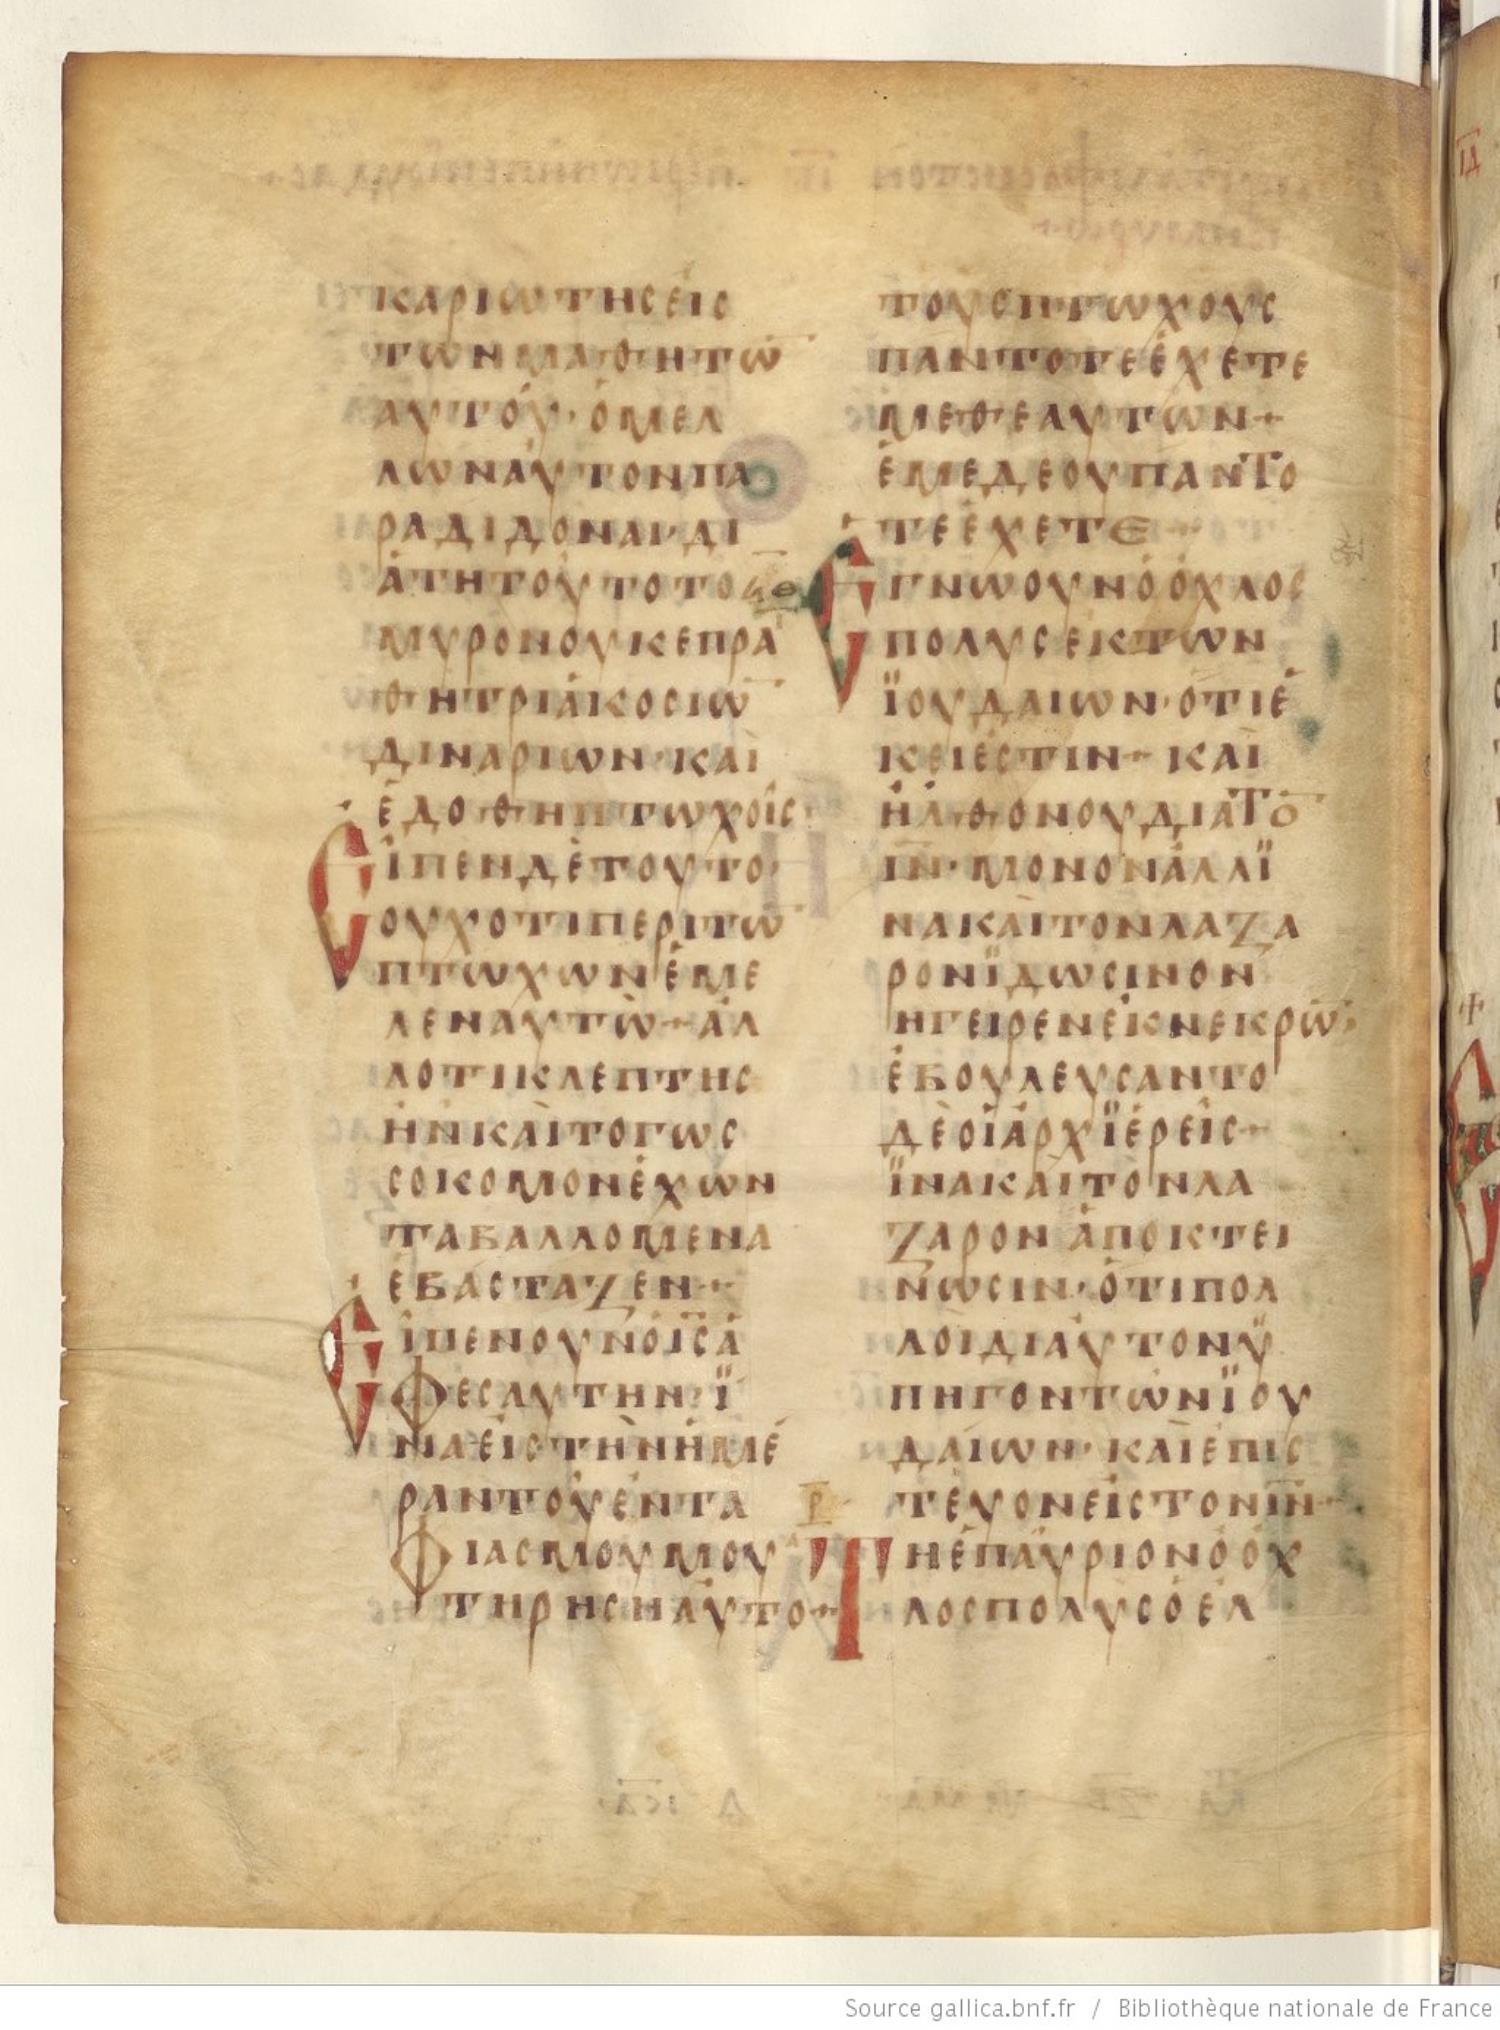 ΚΑΡΙΩΤΗC ΕΙC
ΤΩΝ ΜΑΘΗΤΩ̅
ΑΥΤΟΥ· Ο ΜΕΛ
ΛΩΝ ΑΥΤΟΝ ΠΑ
ΡΑΔΙΔΟΝΑΙ· ΔΙ
ΑΤΗ ΤΟΥΤΟ ΤΟ
ΜΥΡΟΝ ΟΥΚ ΕΠΡΑ
ΘΗ ΤΡΙΑΚΟCΙΩ̅
ΔΙΝΑΡΙΩΝ· ΚΑΙ
ΕΔΟΘΗ ΠΤΩΧΟΙC·
ΕΙΠΕΝ ΔΕ ΤΟΥΤΟ·
ΟΥΧ ΟΤΙ ΠΕΡΙ ΤΩ̅
ΠΤΩΧΩΝ ΕΜΕ
ΛΕΝ ΑΥΤΩ + ΑΛ
Λ ΟΤΙ ΚΛΕΠΤΗC
ΗΝ ΚΑΙ ΤΟ ΓΩC
CΟΚΟΜΟΝ ΕΧΩΝ
ΤΑ ΒΑΛΛΟΜΕΝΑ
ΕΒΑCΤΑΖΕΝ +
ΕΙΠΕΝ ΟΥΝ Ο Ι̅C̅ Α
ΦΕC ΑΥΤΗΝ· Ϊ
ΝΑ ΕΙC ΤΗΝ ΗΜΕ
ΡΑΝ ΤΟΥ ΕΝΤΑ
ΦΙΑCΜΟΥ ΜΟΥ
ΤΗΡΗCΗ ΑΥΤΟ +
ΤΟΥC ΠΤΩΧΟΥC
ΠΑΝΤΟΤΕ ΕΧΕΤΕ
ΜΕΘ ΕΑΥΤΩΝ +
ΕΜΕ ΔΕ ΟΥ ΠΑΝΤΟ
ΤΕ ΕΧΕΤΕ +
Ϟ̅Θ̅ ΕΓΝΩ ΟΥΝ Ο ΟΧΛΟC
ΠΟΛΥC ΕΚ ΤΩΝ
ΪΟΥΔΑΙΩΝ· ΟΤΙ Ε
ΚΕΙ ΕCΤΙΝ + ΚΑΙ
ΗΛΘΟΝ ΟΥ ΔΙΑ ΤΟ̅
Ι̅Ν̅· ΜΟΝΟΝ ΑΛΛ Ϊ
ΝΑ ΚΑΙ ΤΟΝ ΛΑΖΑ
ΡΟΝ ΪΔΩCΙΝ ΟΝ
ΗΓΕΙΡΕΝ ΕΚ ΝΕΚΡΩ̅·
ΕΒΟΥΛΕΥCΑΝΤΟ
ΔΕ ΟΙ ΑΡΧΪΕΡΕΙC +
ΪΝΑ ΚΑΙ ΤΟΝ ΛΑ
ΖΑΡΟΝ ΑΠΟΚΤΕΙ
ΝΩCΙΝ· ΟΤΙ ΠΟΛ
ΛΟΙ ΔΙ ΑΥΤΟΝ Ϋ
ΠΗΓΟΝ ΤΩΝ ΪΟΥ
ΔΑΙΩΝ· ΚΑΙ ΕΠΙC
ΤΕΥΟΝ ΕΙC ΤΟΝ Ι̅Ν̅ +
Ρ̅ ΤΗ ΕΠΑΥΡΙΟΝ Ο ΟΧ
ΛΟC ΠΟΛΥC Ο ΕΛ
Source gallica.bnf.fr / Bibliothèque nationale de France